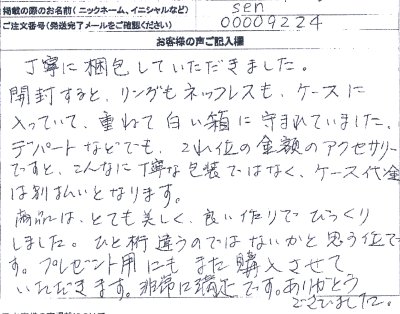 掲載の際のお名前(ニックネーム、イニシャルなど)
sen
ご注文番号(発送完了メールをご確認ください)
00009224
お客様の声ご記入欄
丁寧に梱包していただきました。
開封すると、リングもネックレスも、ケースに
入っていて、重ねて白い箱に守まれていました。
デパートなどでも、これ位の金額のアクセサリー
ですと、こんなに丁寧な包装ではなく、ケース代金
は別払いとなります。
商品は、とても美しく、良い作りでびっくり
しました。ひと桁違うのではないかと思う位で
す。プレゼント用にもまた購入させて
いただきます。非常に満足です。ありがとう
ございました。